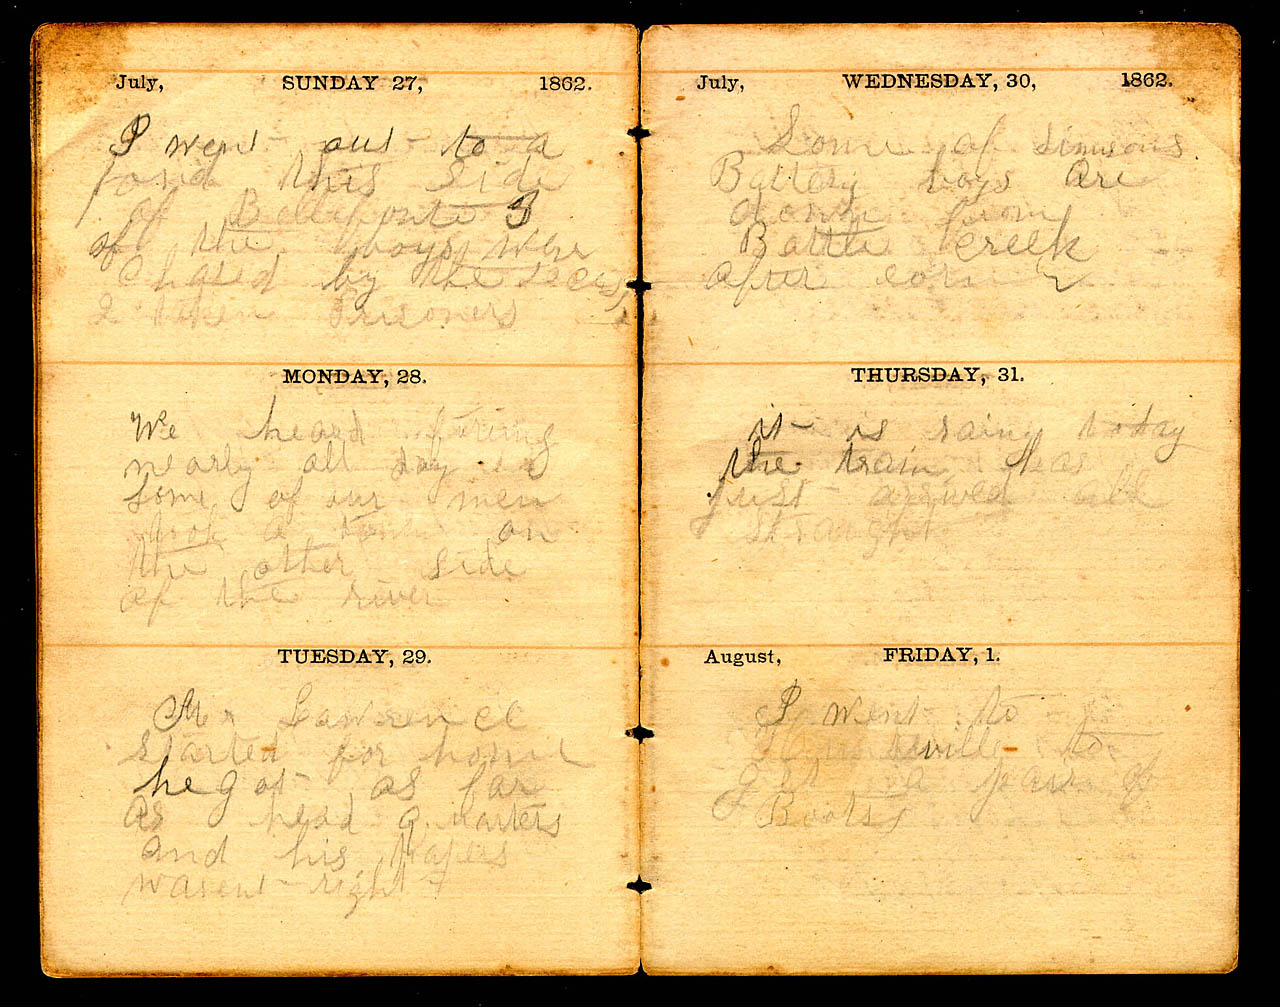 July, SUNDAY 27, 1862.
I went out to a
ford this side
of Bellefonte 3
of the boys were
Chased by the seces
2 taken Prisoners
MONDAY, 28.
We heard firing
nearly all day
Some of our men
took a town on
the other side
of the river
TUESDAY, 29.
Mr Lawrence
started for home
he got as far
as head quarters
and his papers
wasent right
July, WEDNESDAY, 30, 1862.
Some of Simsons
Battery boys are
down from
Battle Creek
after corn
THURSDAY, 31.
it is rainy today
the train has
just arived all
straight
August, FRIDAY, 1.
I went to
to
get a pair of
Boots